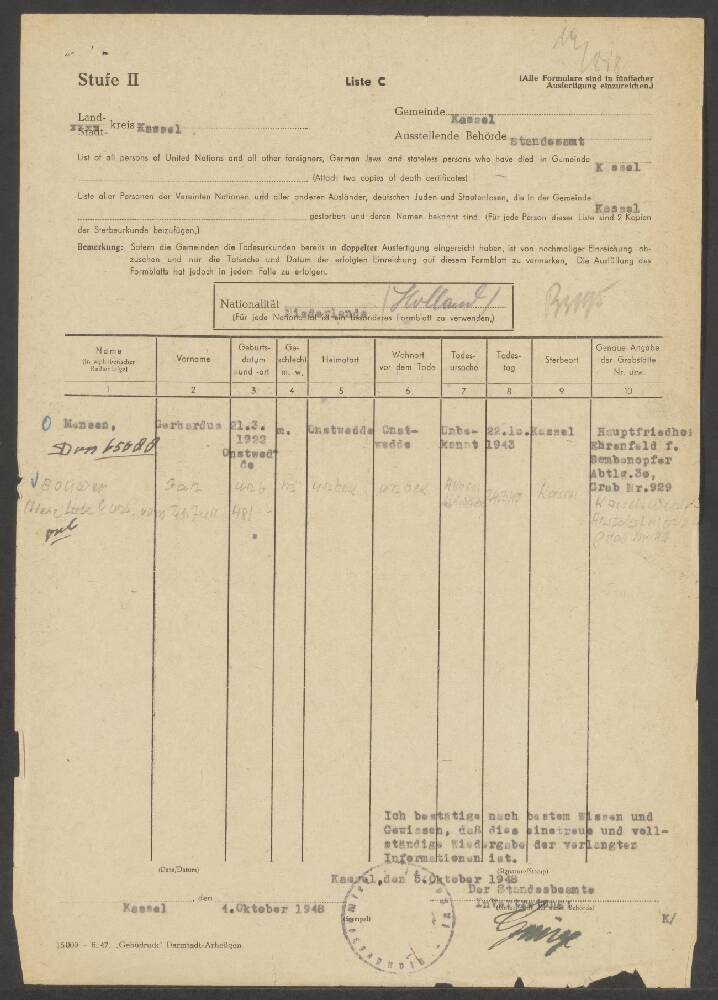 Stufe II
Liste C
(Alle Formulare sind in fünffacher
Ausfertigung einzureichen.)
Land-
Stadt- kreis Kassel
Gemeinde Kassel
Ausstellende Behörde Standesamt
List of all persons of United Nations and all other foreigners, German Jews and stateless persons who have died in Gemeinde K ssel
(Attach two copies of death certificates)
Liste aller Personen der Vereinten Nationen und aller anderen Ausländer, deutschen Juden und Staatenlosen, die in der Gemeinde
Kassel gestorben und deren Namen bekannt sind. (Für jede Person dieser Liste sind 2 Kopien
der Sterbeurkunde beizufügen.)
Bemerkung: Sofern die Gemeinden die Todesurkunden bereits in doppelter Ausfertigung eingereicht haben, ist von nochmaliger Einreichung ab-
zusehen und nur die Tatsache und Datum der erfolgten Einreichung auf diesem Formblatt zu vermerken. Die Ausfüllung des
Formblatts hat jedoch in jedem Falle zu erfolgen.
Nationalität Niederlande (Holland)
(Für jede Nationalität ist ein besonderes Formblatt zu verwenden.)
Name
(in alphabetischer
Reihenfolge)
Vorname
Geburts-
datum
und -ort
Ge-
schlecht
m. w.
Heimatort
Wohnort
vor dem Tode
Todes-
ursache
Todes-
tag
Sterbeort
Genaue Angabe
der Grabstätte
Nr. usw.
1 2 3 4 5 6 7 8 9 10
Mensen, Gerhardus 21.3. m. Onstwedde Onst- Unbe- 22.10. Kassel Hauptfriedhof
1922 wedde kannt 1943 Ehrenfeld f.
Onstwed- Bombenopfer
de Abtlg.3e,
Grab Nr.929
unb m unbek unbek Kassel
Ich bestätige nach bestem Wissen und
Gewissen, daß dies eine treue und voll-
ständige Wiedergabe der verlangten
Informationen ist.
(Date/Datum)
(Signature/Stamp)
Kassel, den 5.Oktober 1948
Der Standesbeamte
Kassel, den 4.Oktober 1948
(Stempel)
K/
15000 – 6. 47. „Gebüdruck" Darmstadt-Arheilgen